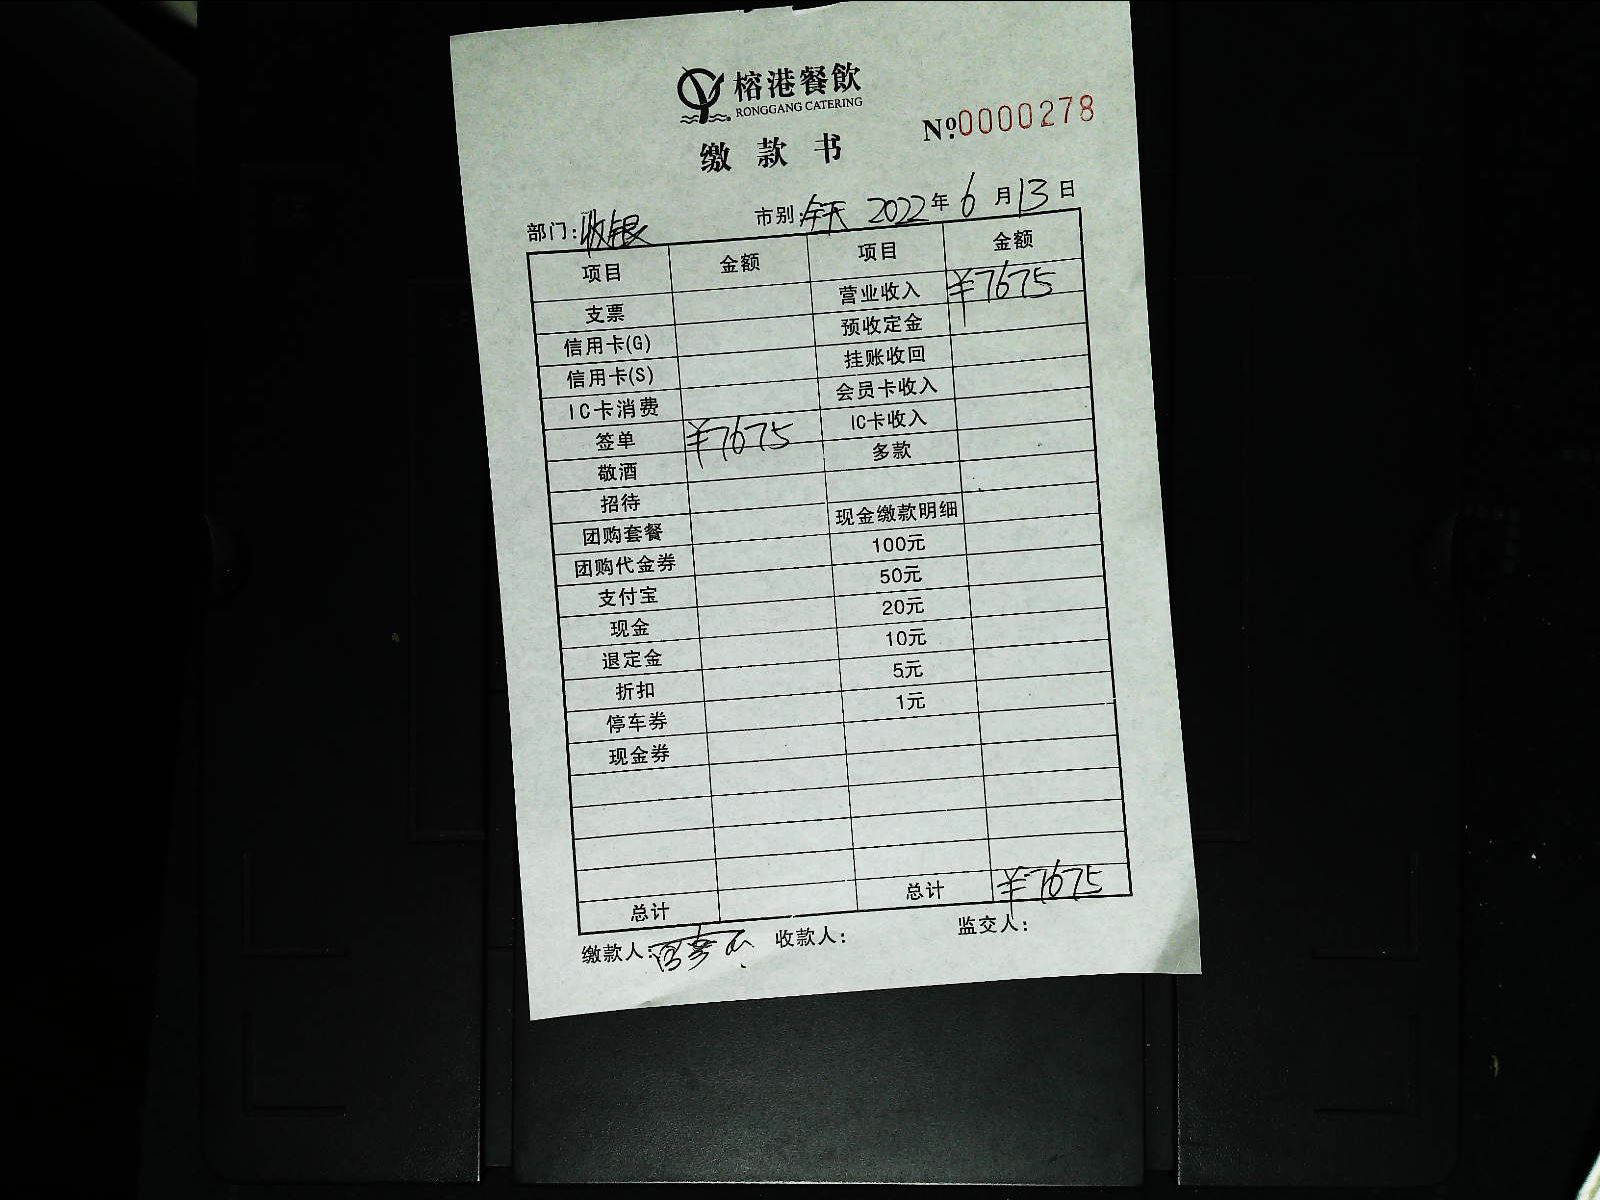 榕港餐飲
RONGGANG CATERING
№0000278
缴款书
部门:收银 市别:全天 2022年6月13日
项目 金额 项目 金额
支票 营业收入 ¥7675
信用卡(G) 预收定金
信用卡(S) 挂账收回
IC卡消费 会员卡收入
签单 ¥7675 IC卡收入
敬酒 多款
招待
团购套餐 现金缴款明细
团购代金券 100元
支付宝 50元
现金 20元
退定金 10元
折扣 5元
停车券 1元
现金券
总计 总计 ¥7675
缴款人: 收款人: 监交人: